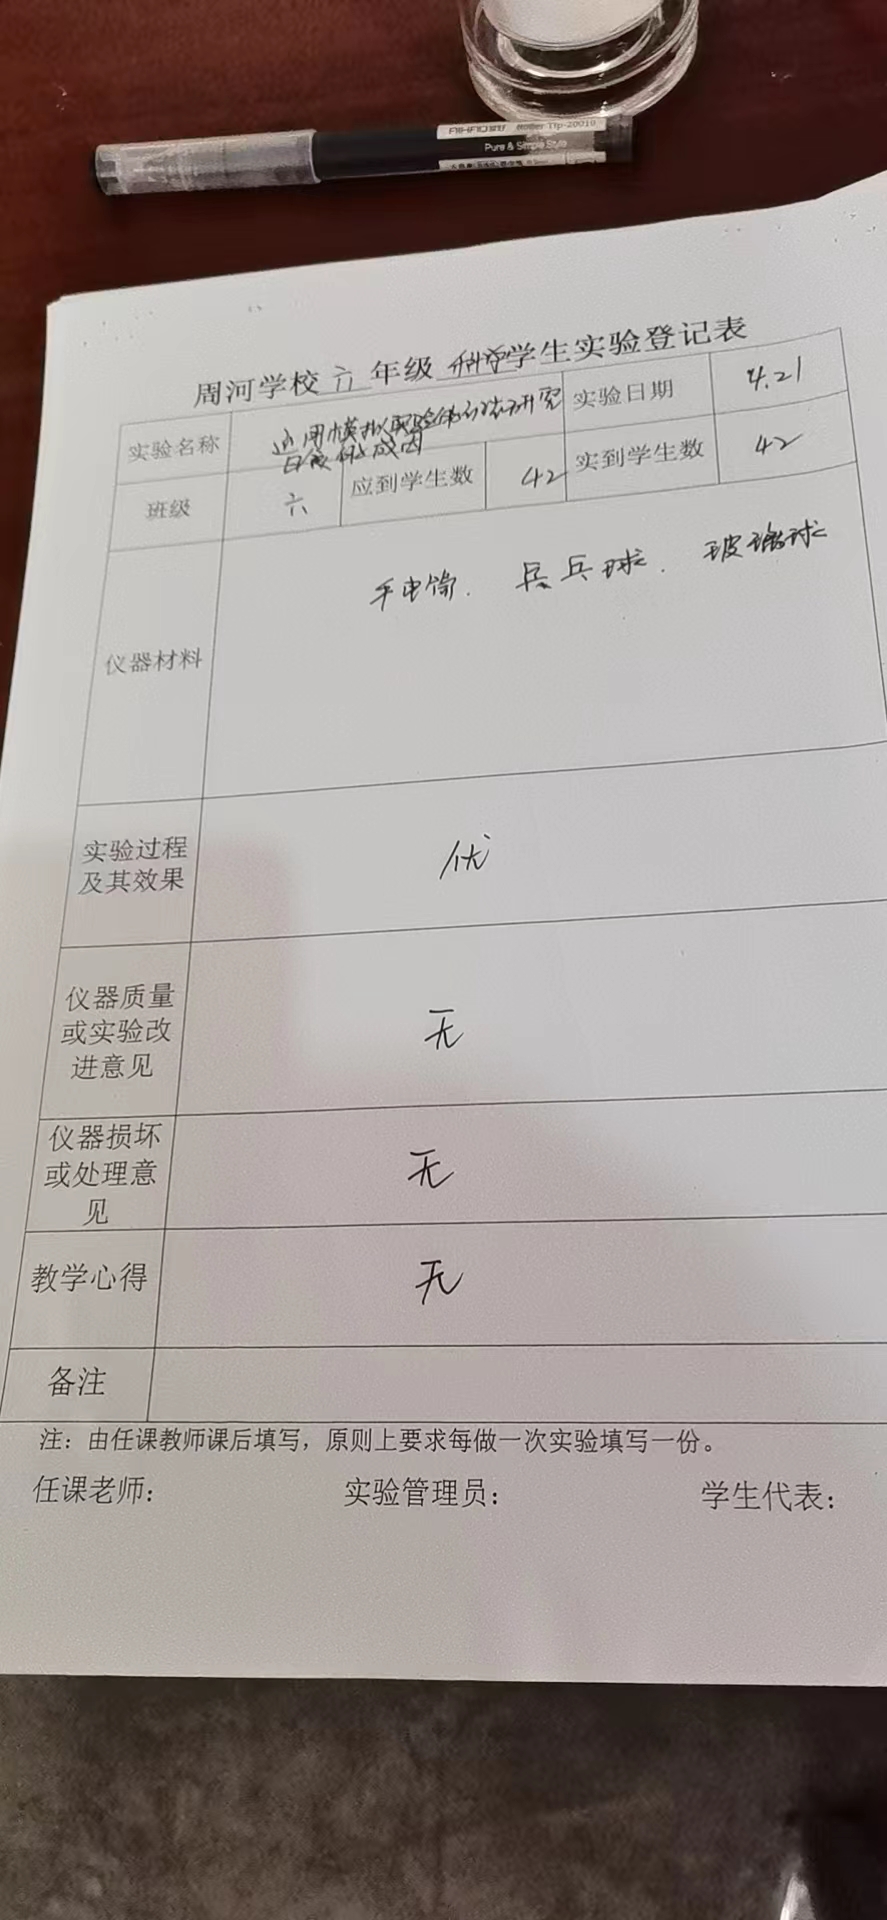 Roller Tip-20010
Pure & Simple Style
周河学校 六 年级 科学 学生实验登记表
实验名称 运用模拟实验的方法研究
日食的成因 实验日期 4.21
班级 六 应到学生数 42 实到学生数 42
仪器材料 手电筒. 乒乓球. 玻璃球
实验过程
及其效果 优
仪器质量
或实验改
进意见 无
仪器损坏
或处理意
见 无
教学心得 无
备注
注：由任课教师课后填写，原则上要求每做一次实验填写一份。
任课老师： 实验管理员： 学生代表：